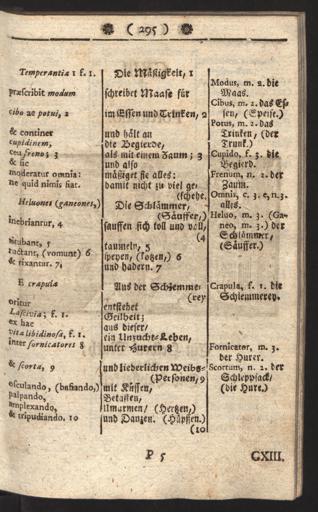 ( 295 )
Temperantia 1 f. 1.
præscribit modum
cibo ac potui, 2
& continet
cupidinem,
ceu freno; 3
& sic
moderatur omnia:
ne quid nimis fiat.
Heluones (ganeones,)
inebriantur, 4
titubant, 5
ructant, (vomunt) 6
& rixantur. 7,
E crapula
oritur
Lascivia; f. 1.
ex hac
vita libidinosa, f. 1.
inter fornicatores 8
& scorta, 9
osculando, (basiando,)
palpando,
amplexando,
& tripudiando. 10
Die Mäßigkeit, 1
schreibet Maase für
im Essen und Trinken, 2
und hält an
die Begierde,
als mit einem Zaum; 3
und also
mäßiget sie alles:
damit nicht zu viel ge-
(schehe.
Die Schlämmer,
(Säuffer,)
sauffen sich toll und voll,
(4
taumeln, 5
speyen, (kotzen) 6
und hadern. 7
Aus der Schlemme-
(rey
entstehet
Geilheit;
aus dieser/
ein Unzucht-Leben,
unter Hurern 8
und liederlichen Weibs-
(Personen, 9
mit Küssen,
Betasten,
Umarmen/ (Hertzen,)
und Danzen. (Hüpffen.)
(10
Modus, m. 2. die
Maas.
Cibus, m. 2. das Es-
sen, (Speise.)
Potus, m. 2. das
Trinken, (der
Trunk.)
Cupido, f. 3. die
Begierd.
Frenum, n. 2. der
Zaum.
Omnis, c. 3. e, n. 3.
alles.
Heluo, m. 3. (Ga-
neo, m. 3.) der
Schlämmer,
(Säuffer.)
Crapula, f. 1. die
Schlemmerey.
Fornicator, m. 3.
der Hurer.
Scortum, n. 2. der
Schleppsack/
(die Hure.)
P 5
CXIII.